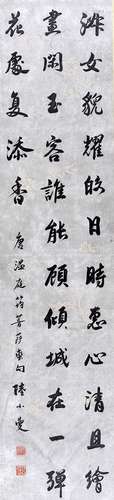 淑女貌耀的日時惠心清且繪
畫閑玉容誰能顧傾城在一彈
花處复添香
唐溫庭筠菩薩蠻句 陸小曼